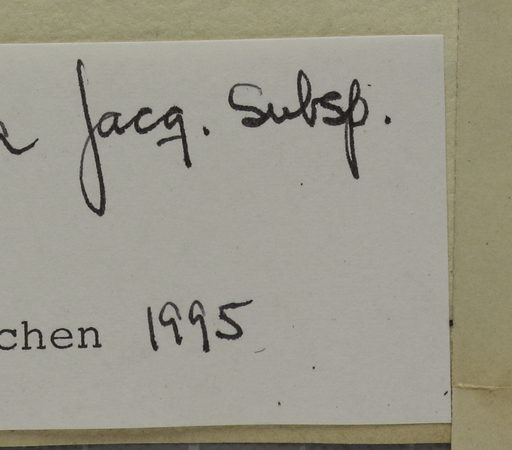 Jacq. Subsp.
chen 1995